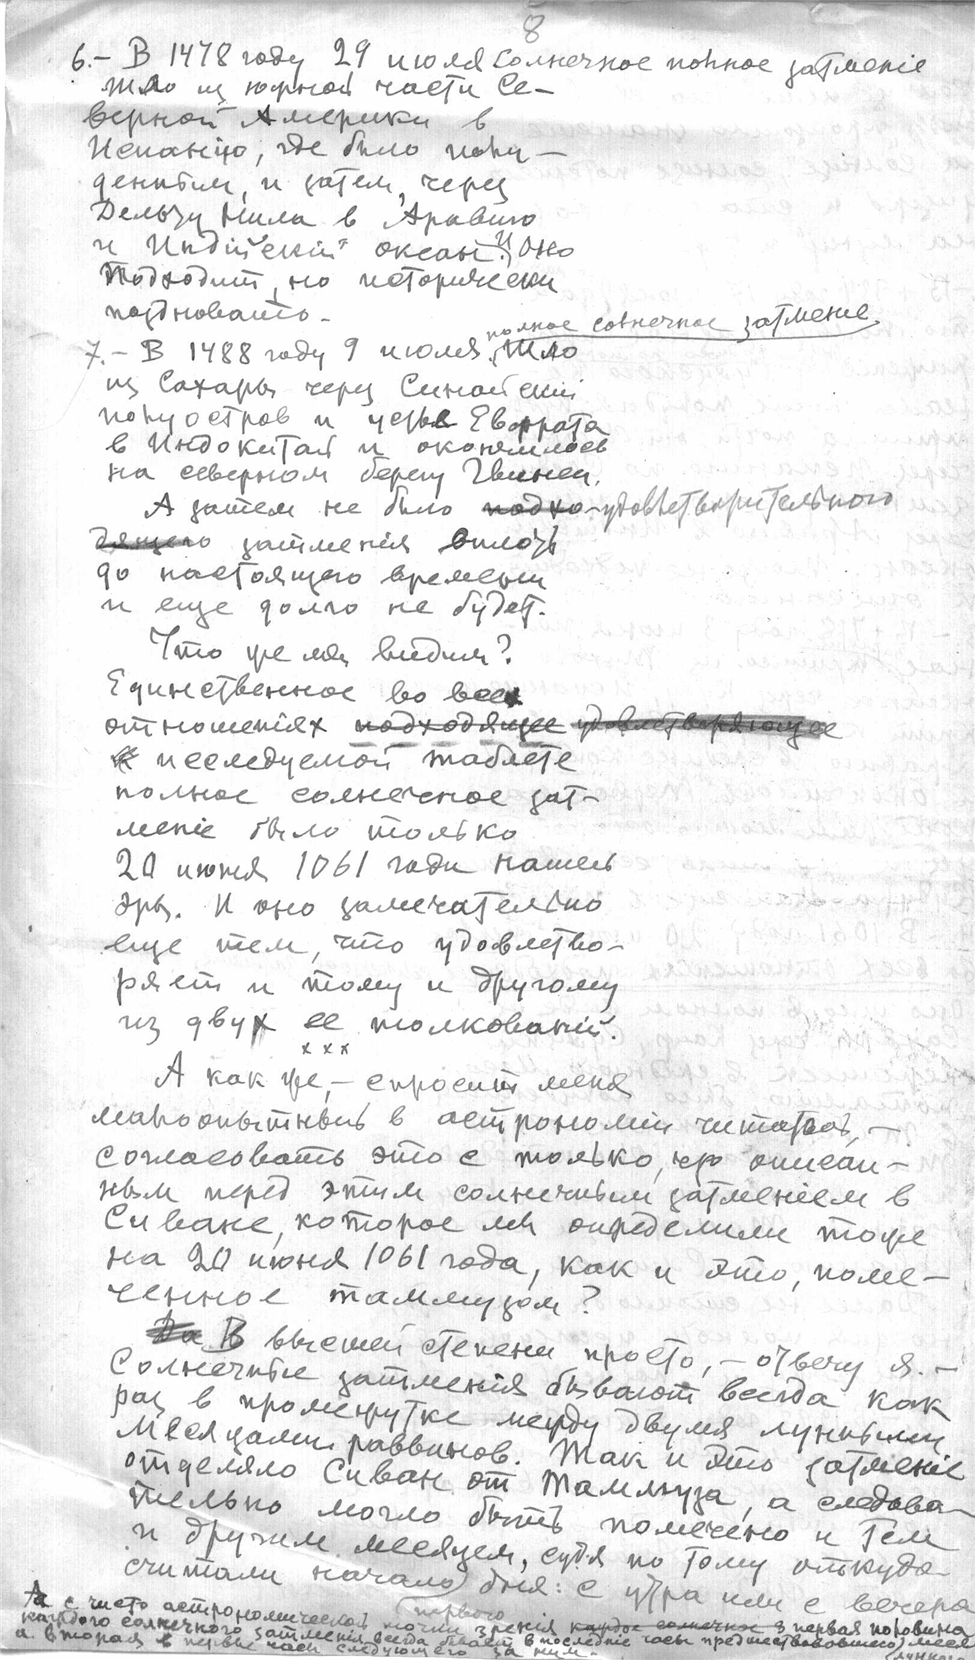 8
6.- В 1478 году 29 июля солнечное полное затменіе
шло из южной части Се-
верной Америки в
Испанию, где было полу-
денным, и затем, через
Дельту Нила в Аравию
и Индійскій океан. И оно
подходит, но исторически
поздновато.
полное солнечное затмение
7.- В 1488 году 9 июля шло
из Сахары через Синайскій
полуостров и устье Евфрата
в Индокитай и окончилось
на северном берегу Гвинеи.
А затем не было подхо- удовлетворительного
дящего затменія вплоть
до настоящего времени
и еще долго не будет.
Что же мы видим?
Единственное во всех
отношеніях подходящее удовлетворяющее
к исследуемой таблете
полное солнечное зат-
меніе было только
20 июня 1061 года нашей
эры. И оно замечательно
еще тем, что удовлетво-
ряет и тому и другому
из двух ее толкованій.
x x x
А как же, – спросит меня
малоопытный в астрономіи читатель, –
согласовать это с только что описан-
ным перед этим солнечным затменіем в
Сиване, которое мы определили тоже
на 20 июня 1061 года, как и это, поме-
ченное таммузом?
Да В высшей степени просто, – отвечу я. –
Солнечные затменія бывают всегда как
раз в промежутке между двумя лунными
месяцами раввинов. Так и это затменіе
отделяло Сиван от Таммуза, а следова-
тельно могло быть помечено и тем
и другим месяцем, судя по тому откуда
считали начало дня: с утра или с вечера
первого
Да с чисто астрономической точки зренія каждое солнечное з первая половина
каждого солнечного затменія всегда бывает в последніе часы предшествовавшего месяца
лунного
а вторая в первые часы следующего за ним.